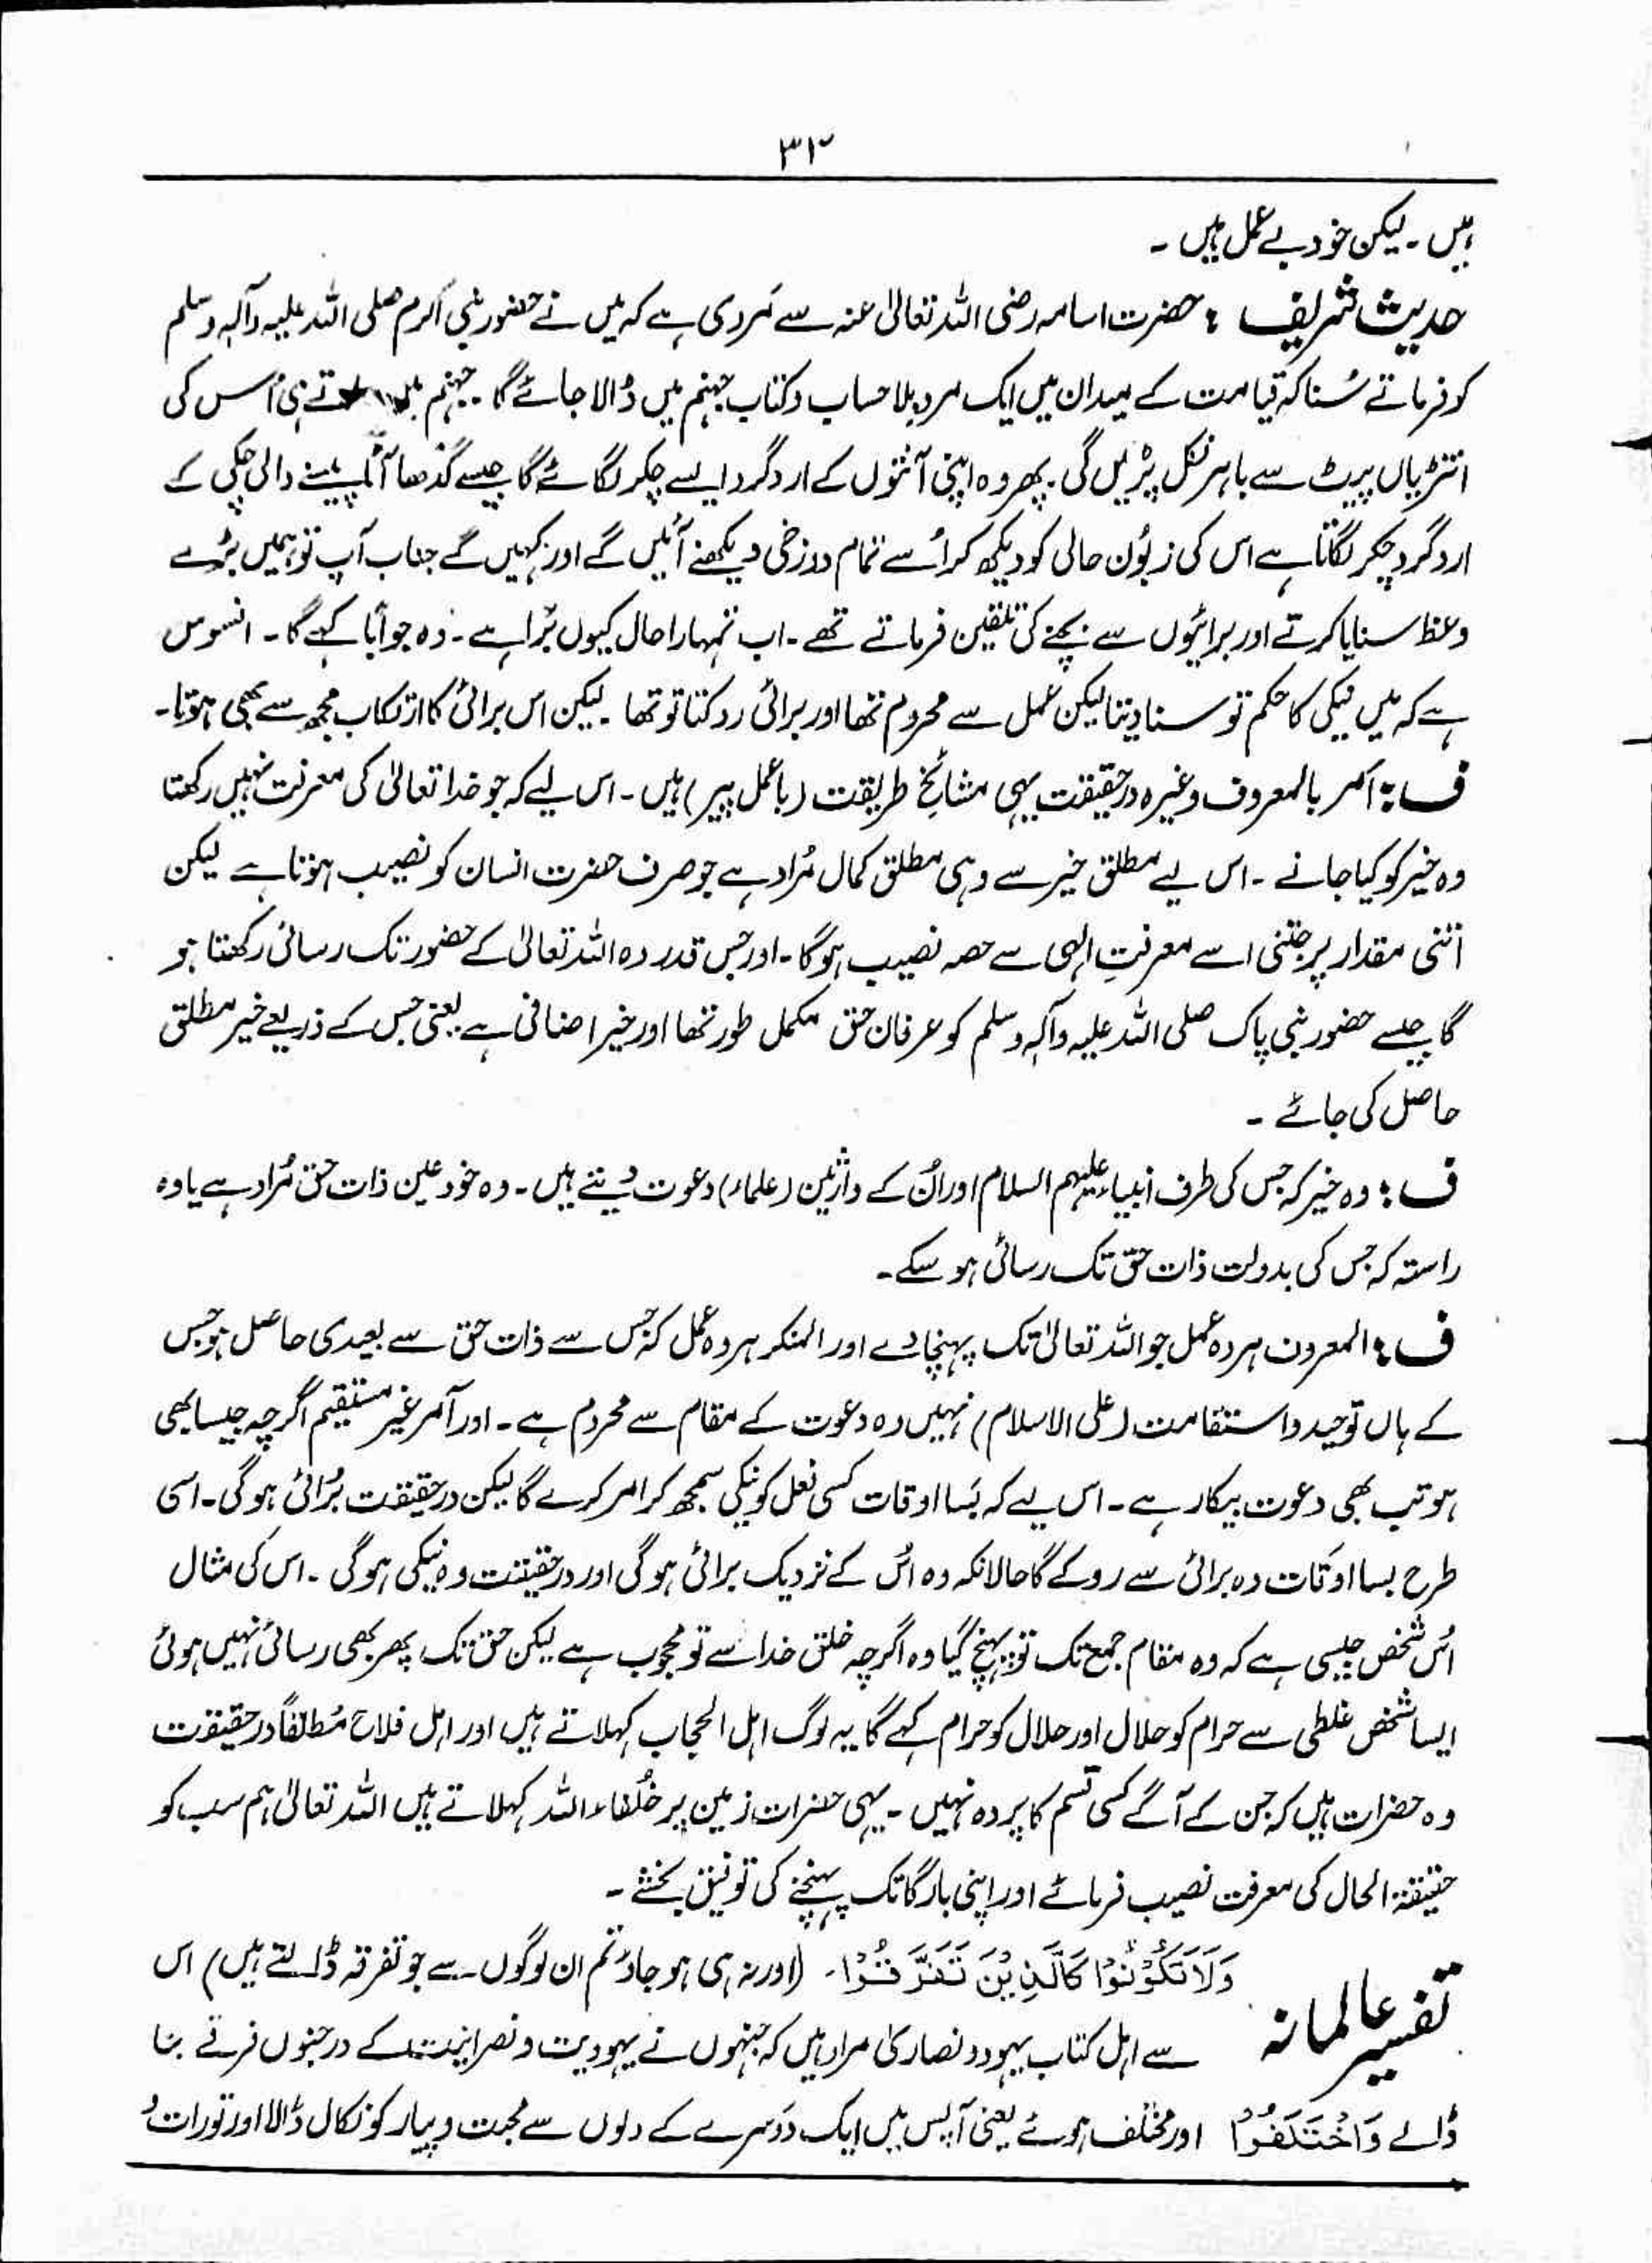 ۳۲
ہیں ۔ لیکن خود بے عمل ہیں ۔
حدیث شریف : حضرت اسامہ رضی اللہ تعالیٰ عنہ سے مروی ہے کہ میں نے حضور نبی اکرم صلی اللہ علیہ وآلہ وسلم
کو فرماتے سُنا کہ قیامت کے میدان میں ایک مرد بلا حساب وکتاب جہنم میں ڈالا جائے گا ۔ جہنم تے ہی اس کی
انتڑیاں پیٹ سے باہر نکل پڑیں گی ۔ پھر وہ اپنی آنتوں کے اردگرد ایسے چکر لگائے گا جیسے گدھا آٹا پیسنے والی چکی کے
اردگرد چکر لگاتا ہے اس کی زبُون حالی کو دیکھ کر اُسے تمام دوزخی دیکھنے آئیں گے اور کہیں گے جناب آپ تو ہمیں بڑے
وعظ سنایا کرتے اور برائیوں سے بچنے کی تلقین فرماتے تھے ۔ اب تمہارا حال کیوں بُرا ہے ۔ وہ جواباً کہے گا ۔ افسوس
ہے کہ میں نیکی کا حکم تو سنا دیتا لیکن عمل سے محروم تھا اور برائی روکتا تو تھا ۔ لیکن اس برائی کا ارتکاب مجھ سے بھی ہوتا ۔
ف : امر بالمعروف وغیرہ درحقیقت یہی مشائخِ طریقت (باعمل پیر) ہیں ۔ اس لیے کہ جو خدا تعالیٰ کی معرفت نہیں رکھتا
وہ خیر کو کیا جانے ۔ اس لیے مطلق خیر سے وہی مطلق کمال مُراد ہے جو صرف حضرت انسان کو نصیب ہوتا ہے لیکن
اتنی مقدار پر جتنی اسے معرفتِ الٰہی سے حصہ نصیب ہوگا ۔ اور جس قدر وہ اللہ تعالیٰ کے حضور تک رسائی رکھتا ہو
گا جیسے حضور نبی پاک صلی اللہ علیہ وآلہ وسلم کو عرفان حق مکمل طور تھا اور خیر اضافی ہے یعنی جس کے ذریعے خیر مطلق
حاصل کی جائے ۔
ف : وہ خیر کہ جس کی طرف انبیاء علیہم السلام اور اُن کے وارثین (علماء) دعوت دیتے ہیں ۔ وہ خود عین ذات حق مُراد ہے یا وہ
راستہ کہ جس کی بدولت ذات حق تک رسائی ہو سکے ۔
ف : المعروف ہر وہ عمل جو اللہ تعالیٰ تک پہنچا دے اور المنکر ہر وہ عمل کہ جس سے ذات حق سے بعیدی حاصل ہو جس
کے ہاں توحید واستقامت (علی الاسلام) نہیں وہ دعوت کے مقام سے محروم ہے ۔ اور آمر غیر مستقیم اگرچہ جیسا بھی
ہو تب بھی دعوت بیکار ہے ۔ اس لیے کہ بَسا اوقات کسی فعل کو نیکی سمجھ کر امر کرے گا لیکن درحقیقت بُرائی ہوگی ۔ اسی
طرح بسا اوقات وہ برائی سے روکے گا حالانکہ وہ اُس کے نزدیک برائی ہوگی اور درحقیقت وہ نیکی ہوگی ۔ اس کی مثال
اُس شخص جیسی ہے کہ وہ مقام جمع تک تو پہنچ گیا وہ اگرچہ خلق خدا سے تو محجوب ہے لیکن حق تک پھر بھی رسائی نہیں ہوئی
ایسا شخص غلطی سے حرام کو حلال اور حلال کو حرام کہے گا یہ لوگ اہل الحجاب کہلاتے ہیں اور اہل فلاح مُطلقاً درحقیقت
وہ حضرات ہیں کہ جن کے آگے کسی قسم کا پردہ نہیں ۔ یہی حضرات زمین پر خُلفاء اللہ کہلاتے ہیں اللہ تعالیٰ ہم سب کو
حقیقۃ الحال کی معرفت نصیب فرمائے اور اپنی بارگا تک پہنچنے کی توفیق بخشے ۔
تفسیر عالمانہ
وَلَا تَكُوْنُوْا كَالَّذِيْنَ تَفَرَّقُوْا ۔ (اور نہ ہی ہو جاؤ تم ان لوگوں سے جو تفرقہ ڈالتے ہیں) اس
سے اہل کتاب یہود و نصاریٰ مراد ہیں کہ جنہوں نے یہودیت و نصرانیت کے درجنوں فرقے بنا
ڈالے وَاخْتَلَفُوْا اور مختلف ہوئے یعنی آپس میں ایک دوسرے کے دلوں سے محبت و پیار کو نکال ڈالا اور تورات و